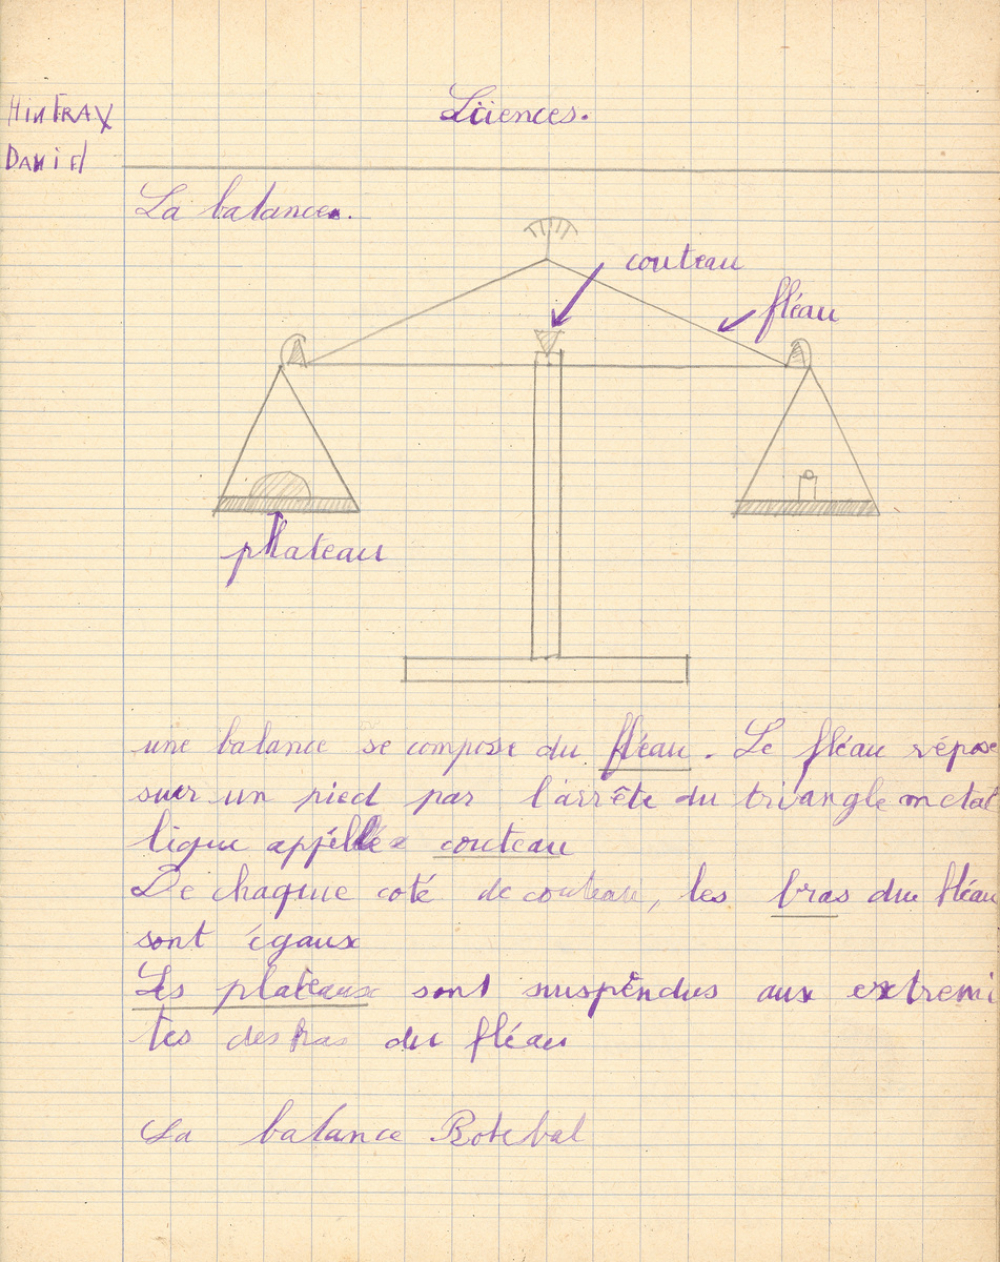 HinFRAY
Sciences.
DANiEl
La balance.
couteau
fléau
plateau
une balance se compose du fléau. Le fléau répose
suur un pied par l'arrête du triangle metal
lique appéllée couteau
De chaque coté de couteau, les bras du fléau
sont égaux
Les plateaux sont suspéndus aux extremi
tes des bras du fléau
La balance Robebal